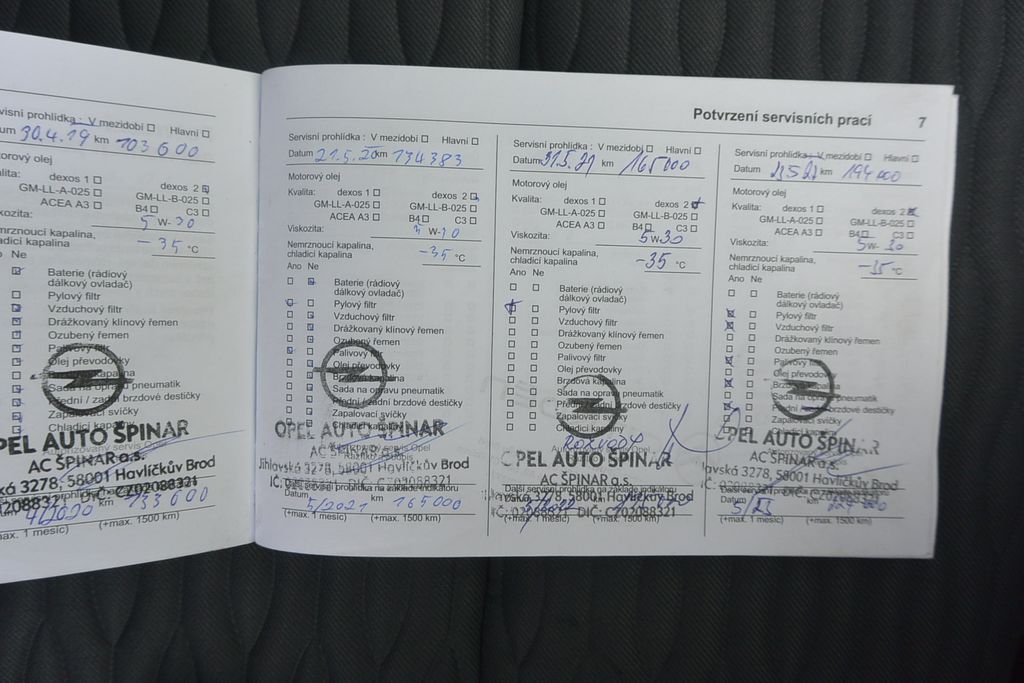 Potvrzení servisních prací 7
visní prohlídka: V mezidobí Hlavní
um 30.4.19 km 103 600
torový olej
lita: dexos 1 dexos 2
GM-LL-A-025 GM-LL-B-025
ACEA A3 B4 C3
kozita: 5 W- 30
mrznoucí kapalina,
adicí kapalina -35 °C
o Ne
Baterie (rádiový
dálkový ovladač)
Pylový filtr
Vzduchový filtr
Drážkovaný klínový řemen
Ozubený řemen
Palivový filtr
Olej převodovky
Brzdová kapalina
Sada na opravu pneumatik
Přední / zadní brzdové destičky
Zapalovací svíčky
Chladicí kapaliny
PEL AUTO ŠPINAR
AC ŠPINAR a.s.
vská 3278, 58001 Havlíčkův Brod
02088321 DIČ: CZ02088321
4/2020 133 600
max. 1 měsíc) (+max. 1500 km)
Servisní prohlídka: V mezidobí Hlavní
Datum 21.5.20 km 134 383
Motorový olej
Kvalita: dexos 1 dexos 2
GM-LL-A-025 GM-LL-B-025
ACEA A3 B4 C3
Viskozita: W-
Nemrznoucí kapalina,
chladicí kapalina -35 °C
Ano Ne
Baterie (rádiový
dálkový ovladač)
Pylový filtr
Vzduchový filtr
Drážkovaný klínový řemen
Ozubený řemen
Palivový filtr
Olej převodovky
Brzdová kapalina
Sada na opravu pneumatik
Přední / zadní brzdové destičky
Zapalovací svíčky
Chladicí kapaliny
OPEL AUTO ŠPINAR
AC ŠPINAR a.s.
Jihlavská 3278, 58001 Havlíčkův Brod
IČ: DIČ: CZ02088321
Datum 5/2021 km 165 000
(+max. 1 měsíc) (+max. 1500 km)
Servisní prohlídka: V mezidobí Hlavní
Datum 31.5.21 km 165 000
Motorový olej
Kvalita: dexos 1 dexos 2
GM-LL-A-025 GM-LL-B-025
ACEA A3 B4 C3
Viskozita: 5 W- 30
Nemrznoucí kapalina,
chladicí kapalina -35 °C
Ano Ne
Baterie (rádiový
dálkový ovladač)
Pylový filtr
Vzduchový filtr
Drážkovaný klínový řemen
Ozubený řemen
Palivový filtr
Olej převodovky
Brzdová kapalina
Sada na opravu pneumatik
Přední / zadní brzdové destičky
Zapalovací svíčky
Chladicí kapaliny
rozvody
PEL AUTO ŠPINAR
AC ŠPINAR a.s.
Další servisní prohlídka na základě indikátoru
vská 3278, 58001 Havlíčkův Brod
IČ: 02088321 DIČ: CZ02088321
(+max. 1 měsíc) (+max. 1500 km)
Servisní prohlídka: V mezidobí Hlavní
Datum km 194 000
Motorový olej
Kvalita: dexos 1 dexos 2
GM-LL-A-025 GM-LL-B-025
ACEA A3 B4 C3
Viskozita: 5 W- 30
Nemrznoucí kapalina,
chladicí kapalina -35 °C
Ano Ne
Baterie (rádiový
dálkový ovladač)
Pylový filtr
Vzduchový filtr
Drážkovaný klínový řemen
Ozubený řemen
Palivový filtr
Olej převodovky
Brzdová kapalina
Sada na opravu pneumatik
Přední / zadní brzdové destičky
Zapalovací svíčky
PEL AUTO ŠPIN
AC ŠPINAR a.s.
lavská 3278, 58001 Havlíčkův Brod
Datum 5/23 km
(+max. 1 měsíc) (+max. 1500 km)